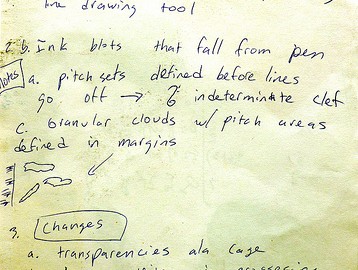 line drawing tool
2. b. Ink blots that fall from pen
notes
a. pitch sets defined before lines
go off → indeterminate clef
C. Granular clouds w/ pitch areas
defined in margins
3. Changes
a. transparencies ala Cage